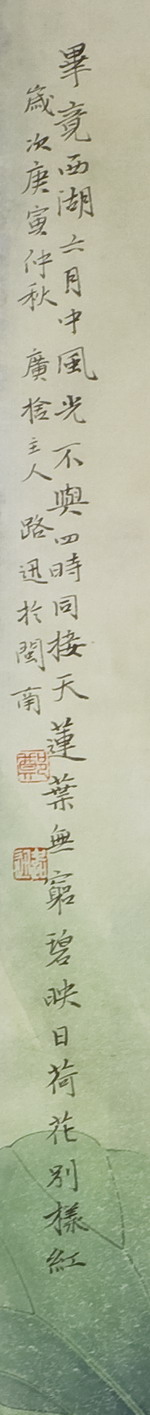 畢竟西湖六月中風光不與四時同接天蓮葉無窮碧映日荷花別樣紅
歲次庚寅仲秋 廣捨主人路迅於閩南